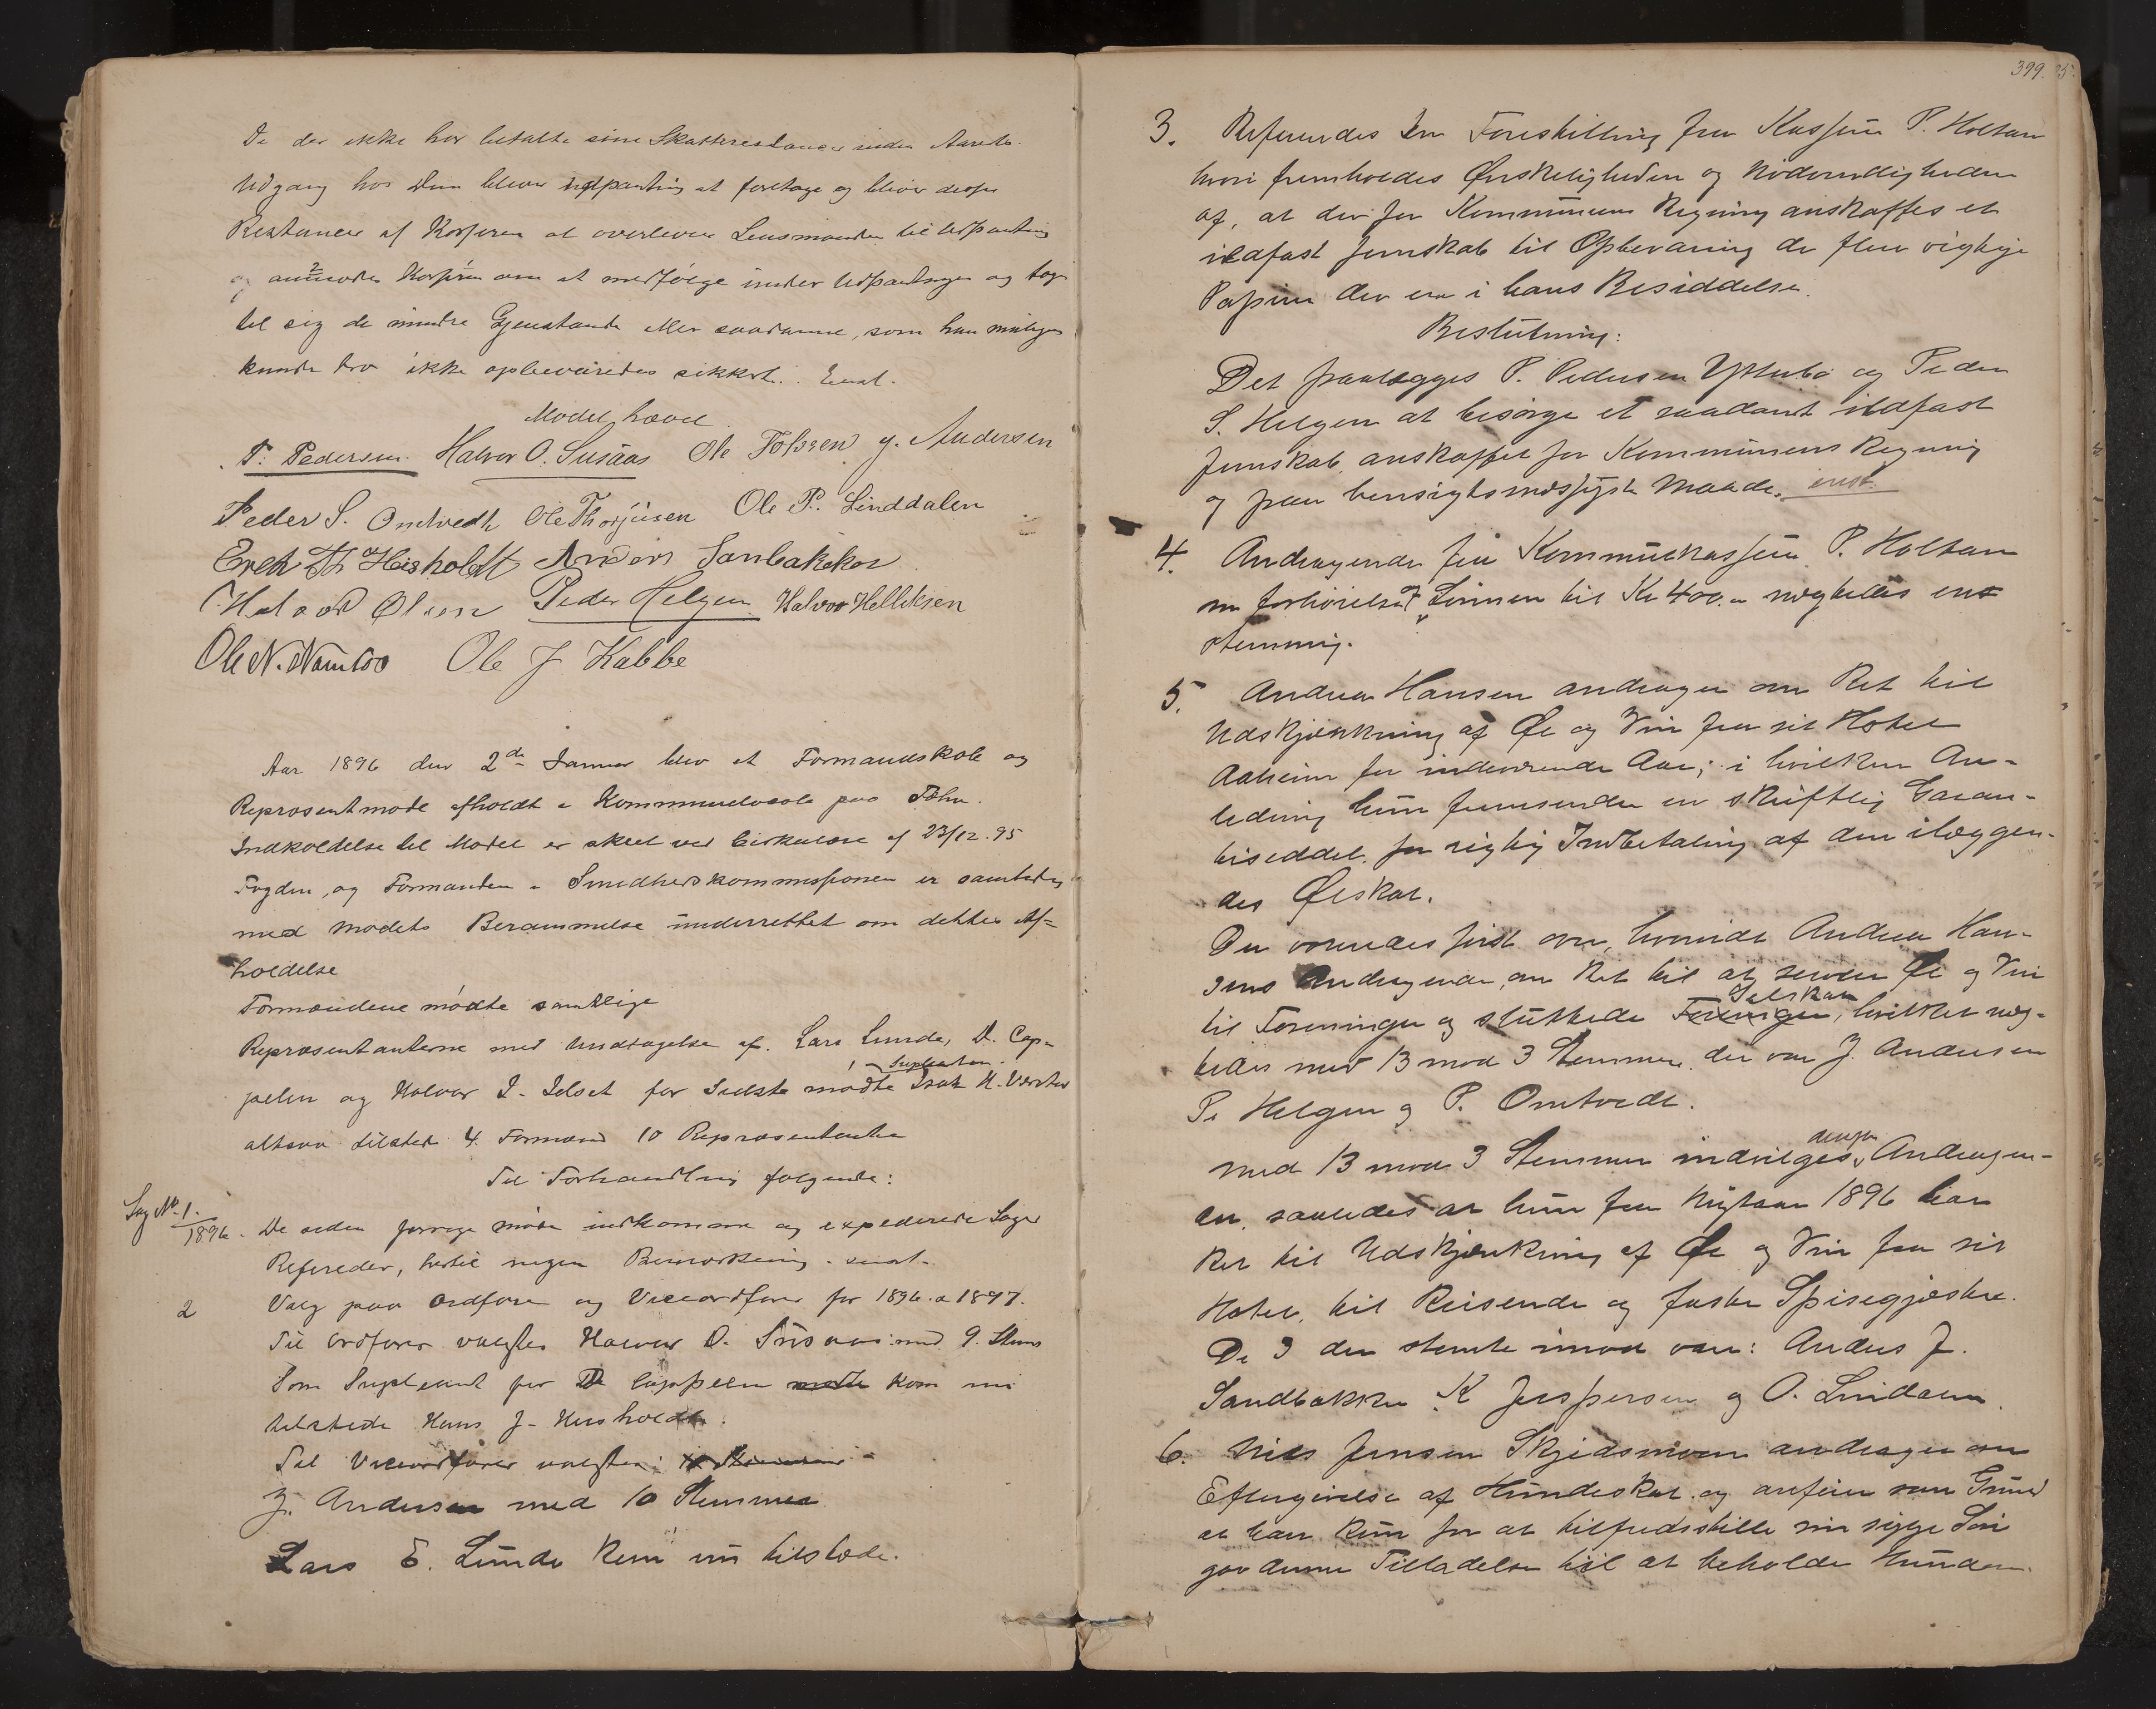 De der ikke har betalte sine Skatterestancer inden Aarets
Udgang hos dem bliver udpanting at foretage og bliver disse
Restancer af Kasseren at overlevere Lensmanden til Udpanting
og anmodes Kasseren om at medfølge under Udpantningen og tage
til sig de mindre Gjenstande eller saadanne, som han muligens
kunde tro ikke opbevaredes sikkert. Enst.
Mødet hævet
P. Pedersen Halvor O. Susaas Ole Tofsen J. Andersen
Peder S. Omtvedt Ole Thorjusen Ole P. Linddalen
Erek Th Heisholdt Anders Sanbakken
Halvor Olsen Peder Helgen Halvor Helliksen
Ole N. Namløs Ole J Kabbe
Aar 1896 den 2de Januar blev et Formandskab og
Representmøde afholdt i Kommunelocale paa
Indkaldelse til Mødet er skeet ved Cirkulære af 23/12. 95
Fogden, og Formanden i Smedherskommissionen er samtidig
med Mødets Berammelse underrettet om dettes Af=
holdelse
Formændene mødte samtlige
Repræsentanterne med Undtagelse af. Lars Lunde, D. Cap-
Supleanten
pelen og Halvor I. for sidste mødte Isak N.
altsaa tilstede 4 Formænd 10 Repræsentanter
Til Forhandling følgende:
Sag No. 1.
1896. De siden forrige møde indkomne og expederede Sager
Refereder, hertil ingen Bemærkning. enst.
2 Valg paa Ordfører og Viceordfører for 1896 a 1897.
Til Ordfører valgtes Halvor O. Susaas med 9. Stems
Som Supleant for D Cappelen mødte kom nu
tilstede Hans J. Heisholdt.
Til Viceordfører valgtes:
J. Andersen med 10 Stemmer
Lars E. Lunde kom nu tilstæde.
399.
3. Refereredes en Forestilling fra Kassirer P. Holtan
hvori fremholdes Ønskeligheden og Nødvendigheden
af, at der for Kommunens Regning anskaffes et
ildfast Jernskab til Opbevaring de flere vigtige
Papirer der ere i hans Besiddelse.
Beslutning:
Det paalægges P. Pedersen Ytterbø og Peder
S. Helgen at besørge et saadant ildfast
Jernskab, anskaffet for Kommunens Regning
og paa hensigtsmæssigste Maade. enst.
4. Andragende fra Kommunekasserer P. Holtan
om forhøielse af Lønnen til Kr 400.- negtedes en-
stemmig.
5. Andrea Hansen andrager om Ret til
Udskjænkning af Øl og Vin fra sit Hotel
Aaheim for indeværende Aar; i hvilken An-
ledning hun fremsender en skriftlig Garan-
tiseddel for rigtig Indbetaling af den ilæggen-
des Ølskat.
Der voteredes først over, hvorvidt Andrea Han-
sens Andragende, om Ret til at servere Øl og Vin
Selskab
til Foreninger og sluttede Foreninger, hvilket neg-
tedes med 13 mod 3 Stemmer, der var J. Andersen
P. Helgen og P. Omtvedt.
dennes
Med 13 mod 3 Stemmer indvilges Andragen-
det, saaledes at hun fra Nytaar 1896 har
Ret til Udskjænkning af Øl og Vin fra sit
Hotel, til Reisende og faste Spisegjæster.
De 3 der stemte imod var: Anders J.
Sandbakken K Jespersen og O. Lindalen
6. Niels Jensen Skjedsmoen andrager om
Eftergivelse af Hundeskat og anfører som Grund
at han kun for at tilfredsstille sin syge Søn
gav denne Tilladelse til at beholde Hunden.